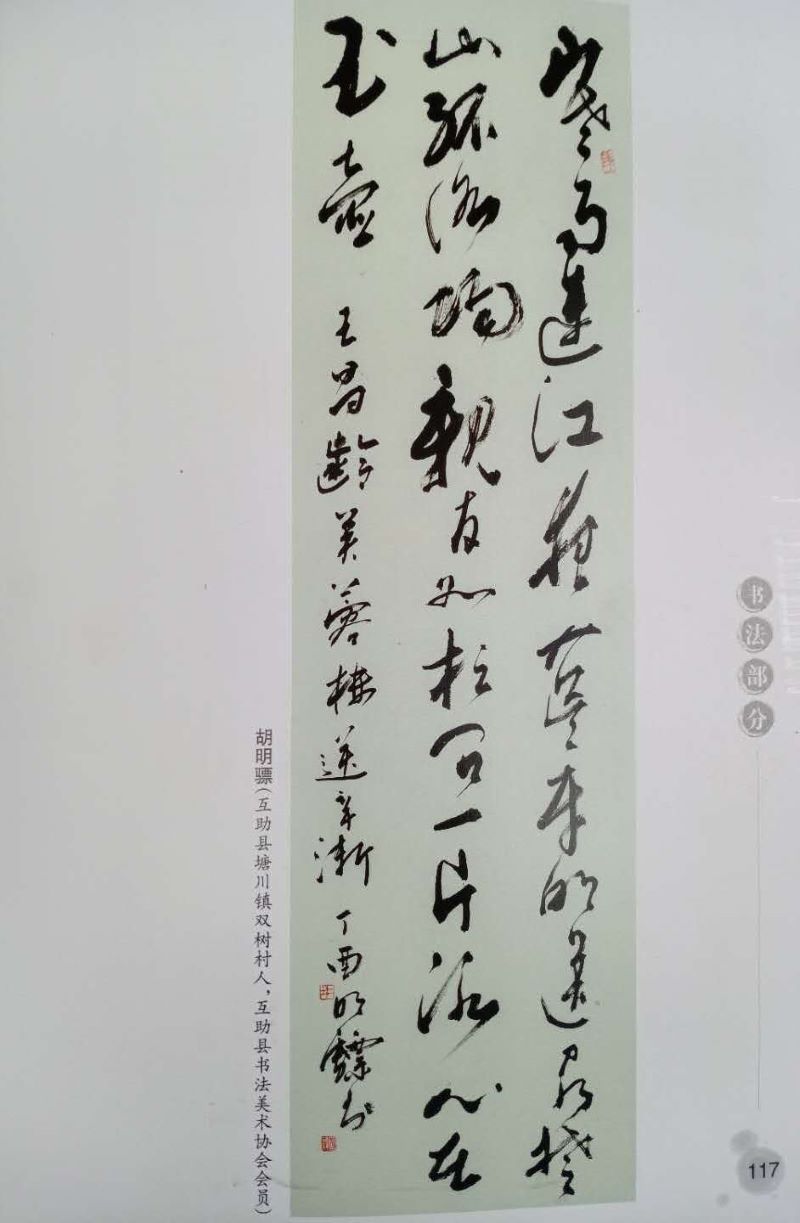 寒雨連江夜入吴平明送客楚
山孤洛陽親友如相问一片冰心在
玉壺 王昌齡芙蓉樓送辛漸 丁酉明驃书
胡明骠(互助县塘川镇双树村人,互助县书法美术协会会员)
书法部分
117